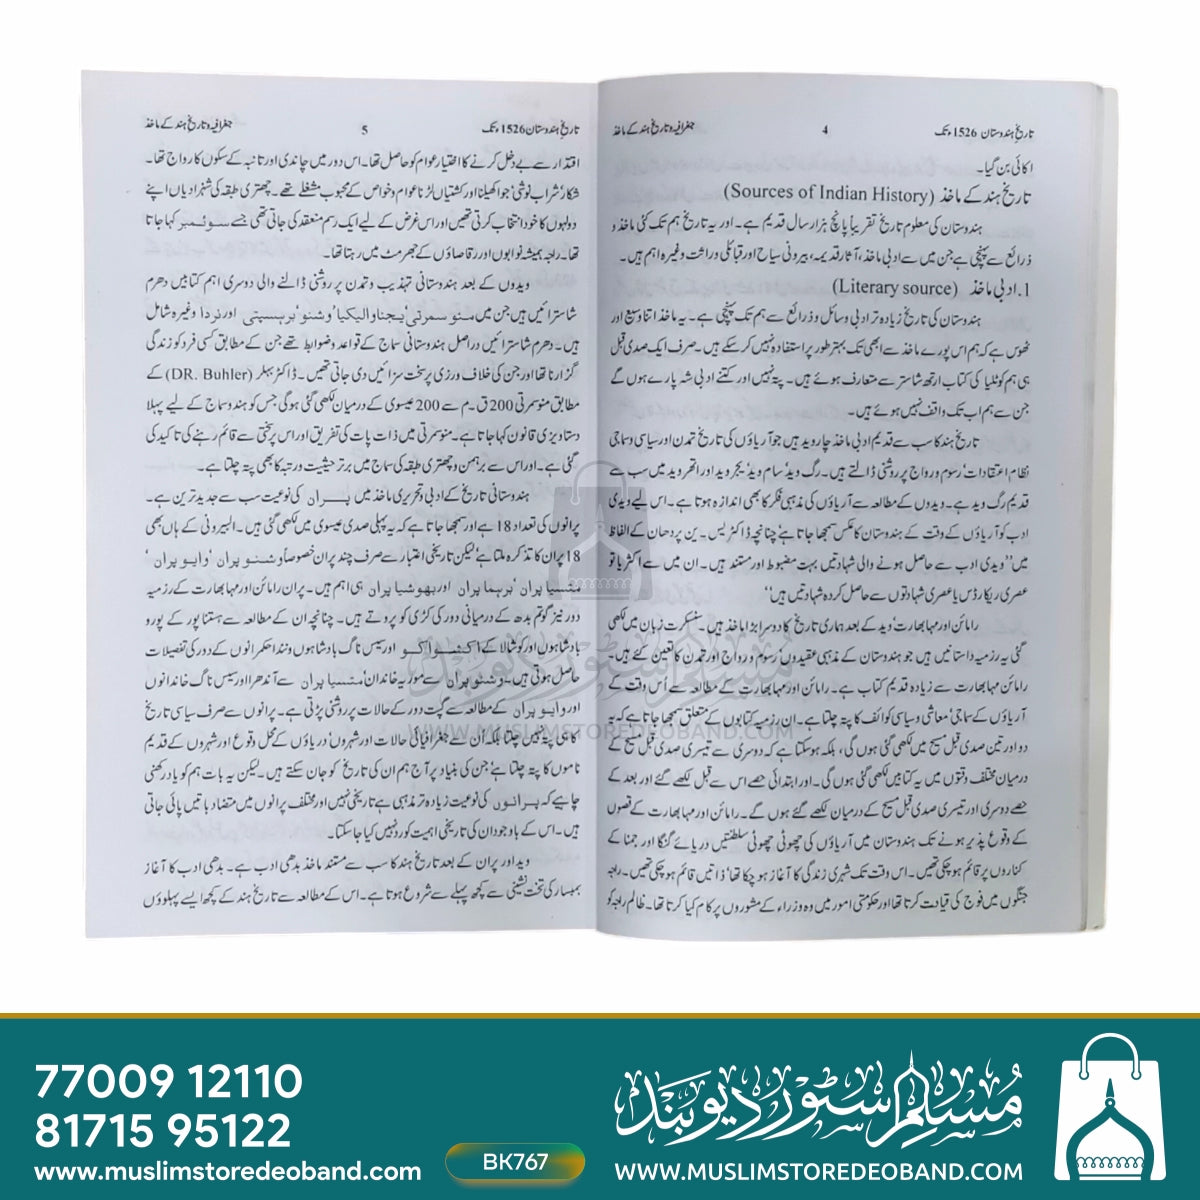 تاریخ ہندوستان 1526ء تک 4 جغرافیہ و تاریخ ہند کے ماخذ
اکائی بن گیا۔
تاریخ ہند کے ماخذ (Sources of Indian History)
ہندوستان کی معلوم تاریخ تقریباً پانچ ہزار سال قدیم ہے۔ اور یہ تاریخ ہم تک کئی ماخذ و
ذرائع سے پہنچی ہے جن میں سے ادبی ماخذ، آثار قدیمہ، بیرونی سیاح اور قبائلی وراثت وغیرہ اہم ہیں۔
1. ادبی ماخذ (Literary source)
ہندوستان کی تاریخ زیادہ تر ادبی وسائل و ذرائع سے ہم تک پہنچی ہے۔ یہ ماخذ اتنا وسیع اور
ٹھوس ہے کہ ہم اس پورے ماخذ سے ابھی تک بہتر طور پر استفادہ نہیں کر سکے ہیں۔ صرف ایک صدی قبل
ہی ہم کوٹلیا کی کتاب ارتھ شاستر سے متعارف ہوئے ہیں۔ پتہ نہیں اور کتنے ادبی شہ پارے ہوں گے
جن سے ہم اب تک واقف نہیں ہوئے ہیں۔
تاریخ ہند کا سب سے قدیم ادبی ماخذ چار وید ہیں جو آریاؤں کی تاریخ تمدن اور سیاسی و سماجی
نظام اعتقادات‘ رسوم و رواج پر روشنی ڈالتے ہیں۔ رگ وید‘ سام وید‘ یجر وید اور اتھر وید میں سب سے
قدیم رگ وید ہے۔ ویدوں کے مطالعہ سے آریاؤں کی مذہبی فکر کا بھی اندازہ ہوتا ہے۔ اس لیے ویدی
ادب کو آریاؤں کے وقت کے ہندوستان کا عکس سمجھا جاتا ہے‘ چنانچہ ڈاکٹر یس۔ ین پردھان کے الفاظ
میں ”ویدی ادب سے حاصل ہونے والی شہادتیں بہت مضبوط اور مستند ہیں۔ ان میں سے اکثر یا تو
عصری ریکارڈس یا عصری شہادتوں سے حاصل کردہ شہادتیں ہیں“
رامائن اور مہابھارت‘ وید کے بعد ہماری تاریخ کا دوسرا بڑا ماخذ ہیں۔ سنسکرت زبان میں لکھی
گئی یہ رزمیہ داستانیں ہیں جو ہندوستان کے مذہبی عقیدوں‘ رسوم و رواج اور تمدن کا تعین کئے ہیں۔
رامائن مہابھارت سے زیادہ قدیم کتاب ہے۔ رامائن اور مہابھارت کے مطالعہ سے اُس وقت کے
آریاؤں کے سماجی‘ معاشی و سیاسی کوائف کا پتہ چلتا ہے۔ ان رزمیہ کتابوں کے متعلق سمجھا جاتا ہے کہ یہ
دو اور تین صدی قبل مسیح میں لکھی گئی ہوں گی، بلکہ ہو سکتا ہے کہ دوسری سے تیسری صدی قبل مسیح کے
درمیان مختلف وقتوں میں یہ کتابیں لکھی گئی ہوں گی۔ اور ابتدائی حصے اس سے قبل لکھے گئے اور بعد کے
حصے دوسری اور تیسری صدی قبل مسیح کے درمیان لکھے گئے ہوں گے۔ رامائن اور مہابھارت کے قصوں
کے وقوع پذیر ہونے تک ہندوستان میں آریاؤں کی چھوٹی چھوٹی سلطنتیں دریائے گنگا اور جمنا کے
کناروں پر قائم ہو چکی تھیں۔ اس وقت تک شہری زندگی کا آغاز ہو چکا تھا‘ ذاتیں قائم ہو چکی تھیں۔ راجہ
جنگوں میں فوج کی قیادت کرتا تھا اور حکومتی امور میں وہ وزراء کے مشوروں پر کام کیا کرتا تھا۔ ظالم راجہ کو
تاریخ ہندوستان 1526ء تک 5 جغرافیہ و تاریخ ہند کے ماخذ
اقتدار سے بے دخل کرنے کا اختیار عوام کو حاصل تھا۔ اس دور میں چاندی اور تانبہ کے سکوں کا رواج تھا۔
شکار‘ شراب نوشی‘ جوا کھیلنا اور کشتیاں لڑنا عوام و خواص کے محبوب مشغلے تھے۔ چھتری طبقہ کی شہزادیاں اپنے
دولہوں کا خود انتخاب کرتی تھیں اور اس غرض کے لیے ایک رسم منعقد کی جاتی تھی جسے سوئمبر کہا جاتا
تھا۔ راجہ ہمیشہ نوابوں اور رقاصاؤں کے جھرمٹ میں رہتا تھا۔
ویدوں کے بعد ہندوستانی تہذیب و تمدن پر روشنی ڈالنے والی دوسری اہم کتابیں دھرم
شاسترائیں ہیں جن میں منو سمرتی‘ یجناوالیکیا‘ وشنو‘ برہسپتی اور نردا وغیرہ شامل
ہیں۔ دھرم شاسترائیں دراصل ہندوستانی سماج کے قواعد و ضوابط تھے جن کے مطابق کسی فرد کو زندگی
گزارنا تھا اور جن کی خلاف ورزی پر سخت سزائیں دی جاتی تھیں۔ ڈاکٹر بہلر (DR. Buhler) کے
مطابق منو سمرتی 200 ق۔م سے 200 عیسوی کے درمیان لکھی گئی ہوگی جس کو ہندو سماج کے لیے پہلا
دستاویزی قانون کہا جاتا ہے۔ منو سمرتی میں ذات پات کی تفریق اور اس پر سختی سے قائم رہنے کی تاکید کی
گئی ہے۔ اور اس سے برہمن و چھتری طبقہ کی سماج میں برتر حیثیت و رتبہ کا بھی پتہ چلتا ہے۔
ہندوستانی تاریخ کے ادبی و تحریری ماخذ میں پران کی نوعیت سب سے جدید ترین ہے۔
پرانوں کی تعداد 18 ہے اور سمجھا جاتا ہے کہ یہ پہلی صدی عیسوی میں لکھی گئی ہیں۔ البیرونی کے ہاں بھی
18 پران کا تذکرہ ملتا ہے‘ لیکن تاریخی اعتبار سے صرف چند پران خصوصاً وشنو پران‘ وایو پران‘
متسیا پران‘ برہما پران اور بھوشیا پران ہی اہم ہیں۔ پران رامائن اور مہابھارت کے رزمیہ
دور نیز گوتم بدھ کے درمیانی دور کی کڑی کو پروتے ہیں۔ چنانچہ ان کے مطالعہ سے ہستنا پور کے پورو
بادشاہوں اور کوشالا کے اکشواکو اور سیس ناگ بادشاہوں و نندا حکمرانوں کے دور کی تفصیلات
حاصل ہوتی ہیں۔ وشنو پران سے موریہ خاندان‘ متسیا پران سے آندھرا اور سیس ناگ خاندانوں
اور وایو پران کے مطالعہ سے گپت دور کے حالات پر روشنی پڑتی ہے۔ پرانوں سے صرف سیاسی تاریخ
کا ہی پتہ نہیں چلتا بلکہ اُن سے جغرافیائی حالات اور شہروں‘ دریاؤں کے محل وقوع اور شہروں کے قدیم
ناموں کا پتہ چلتا ہے‘ جن کی بنیاد پر آج ہم ان کی تاریخ کو جان سکتے ہیں۔ لیکن یہ بات ہم کو یاد رکھنی
چاہیے کہ پرانوں کی نوعیت زیادہ تر مذہبی ہے تاریخی نہیں اور مختلف پرانوں میں متضاد باتیں پائی جاتی
ہیں۔ اس کے باوجود ان کی تاریخی اہمیت کو رد نہیں کیا جا سکتا۔
وید اور پران کے بعد تاریخ ہند کا سب سے مستند ماخذ بدھی ادب ہے۔ بدھی ادب کا آغاز
بمبسار کی تخت نشینی سے کچھ پہلے سے شروع ہوتا ہے۔ اس کے مطالعہ سے تاریخ ہند کے کچھ ایسے پہلوؤں
مسلم سٹور دیوبند
WWW.MUSLIMSTOREDEOBAND.COM
77009 12110
81715 95122
www.muslimstoredeoband.com
BK767
مسلم سٹور دیوبند
WWW.MUSLIMSTOREDEOBAND.COM